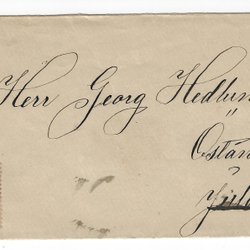 Herr Georg Hedlun
"
Östan